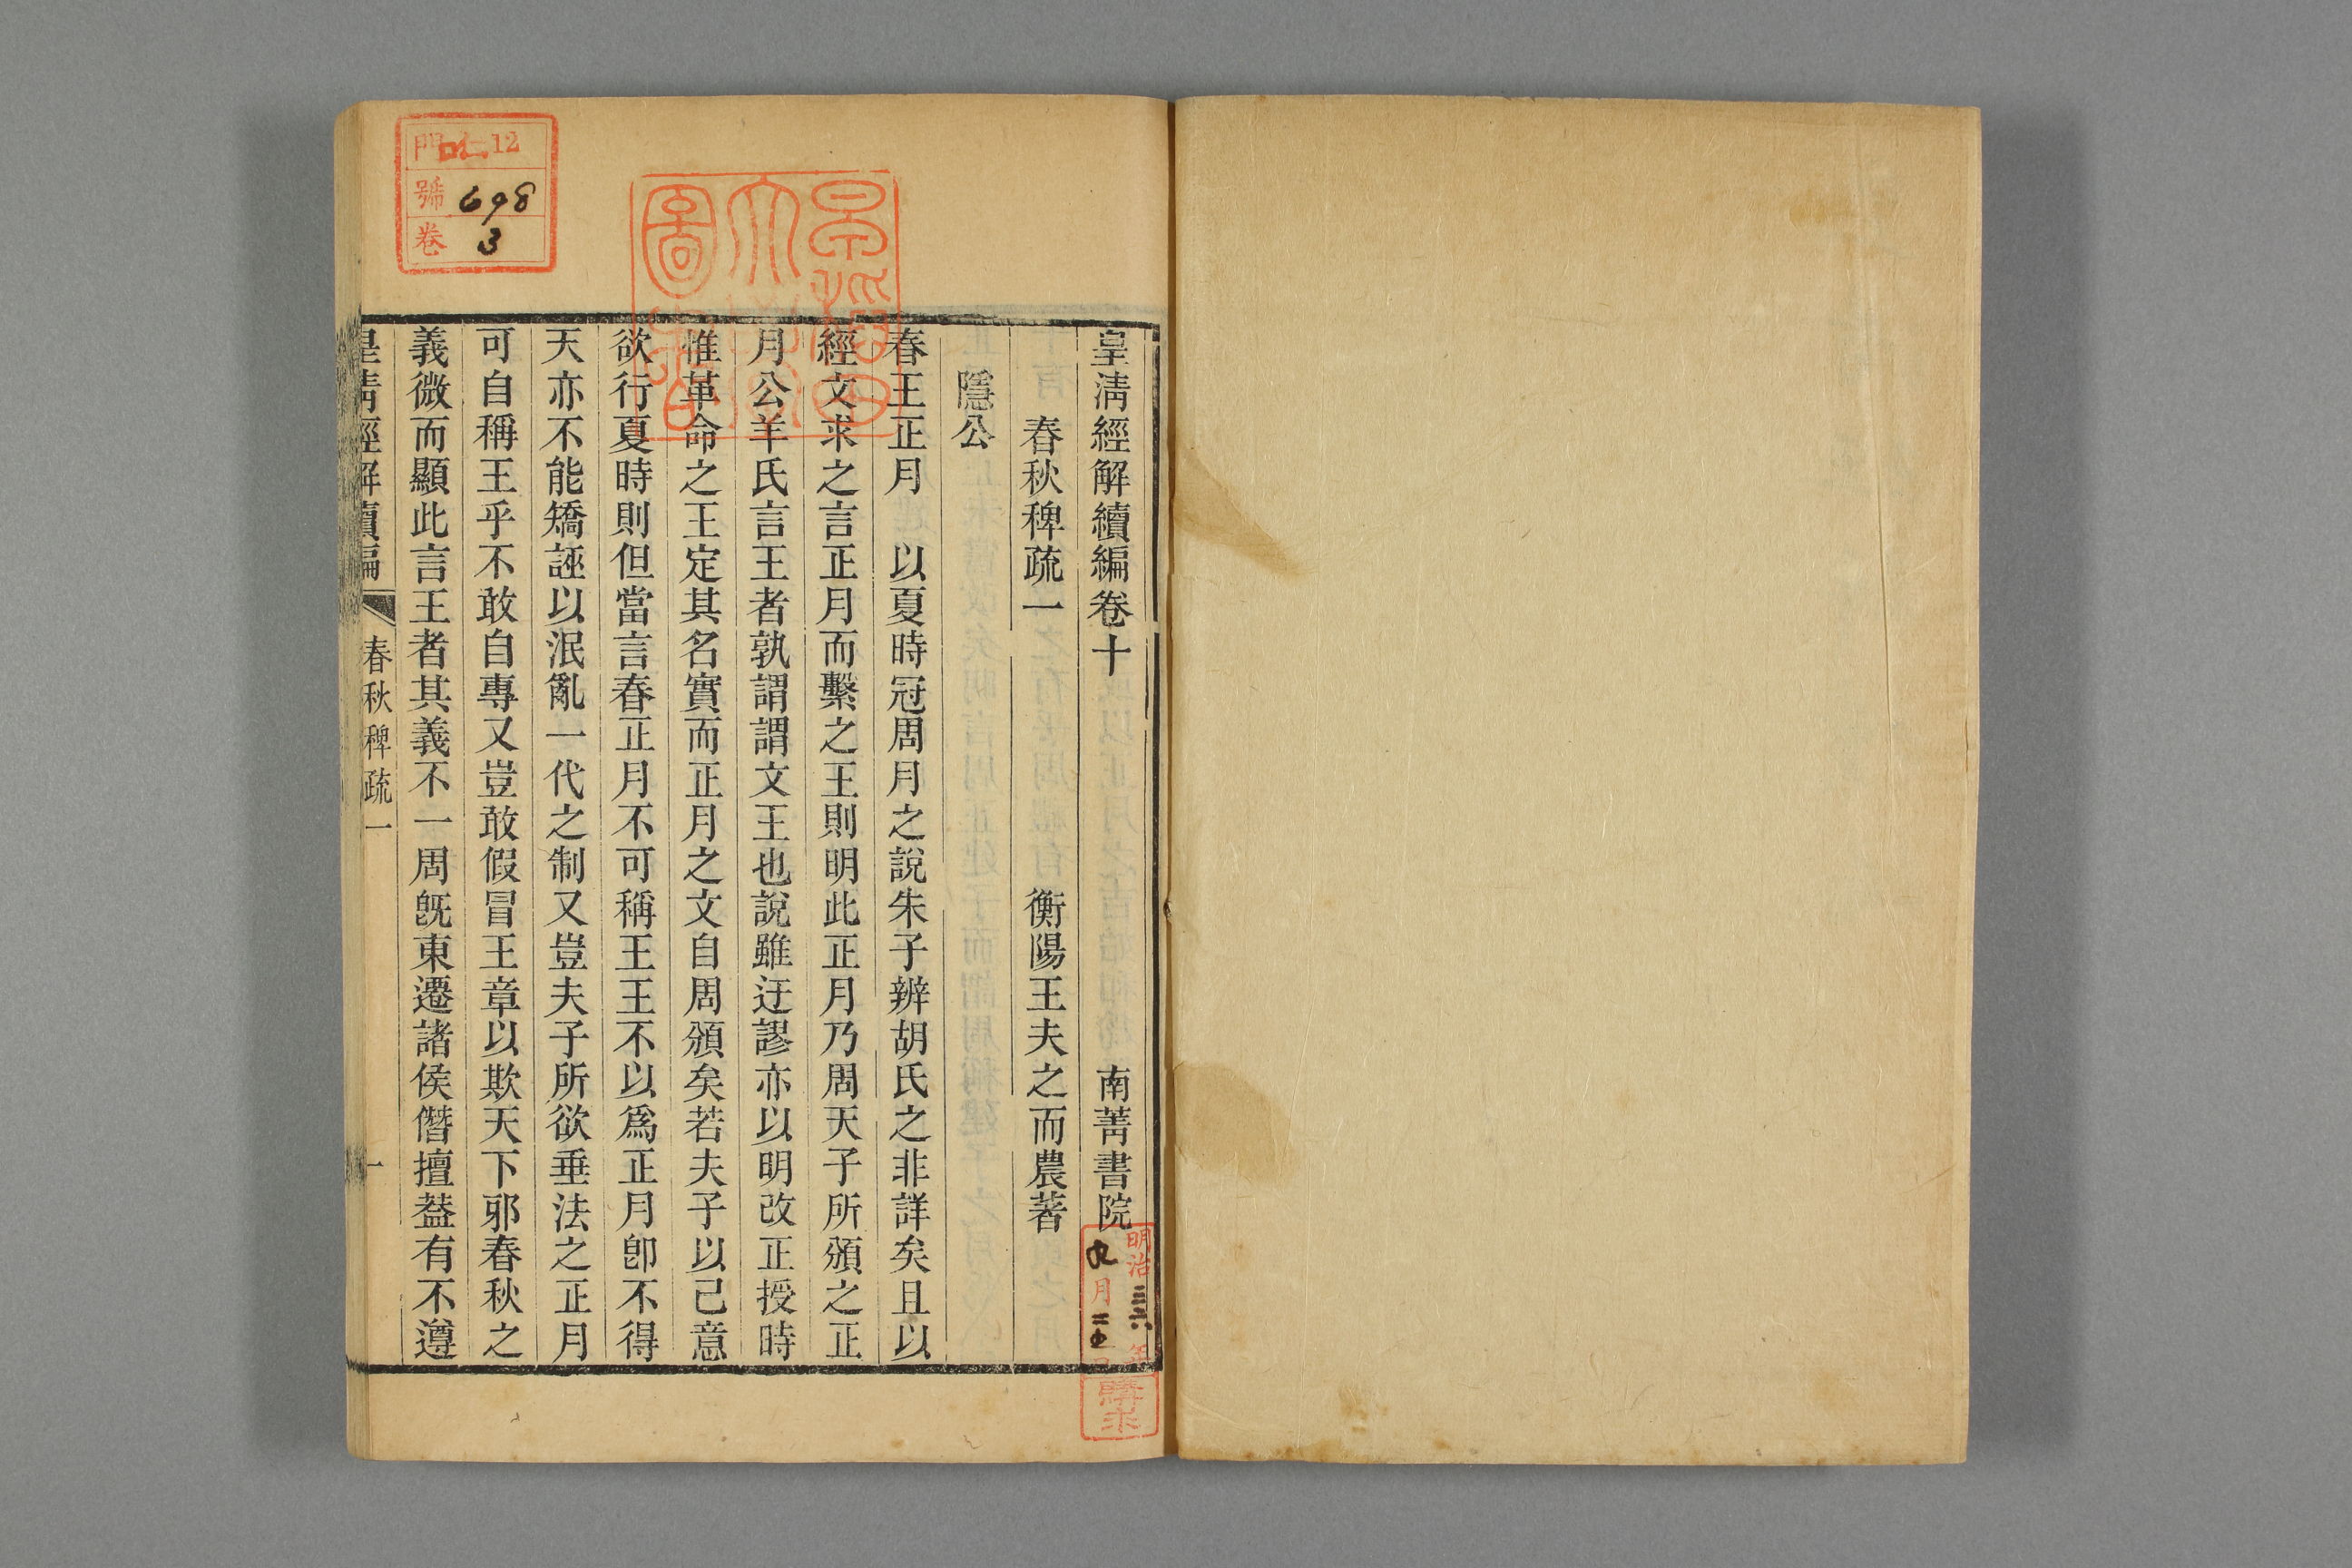 皇清經解續編卷十　南菁書院
春秋稗疏一　衡陽王夫之而農著
隱公
春王正月　以夏時冠周月之說朱子辨胡氏之非詳矣且以
經文求之言正月而繫之王則明此正月乃周天子所頒之正
月公羊氏言王者孰謂謂文王也說雖迂謬亦以明改正授時
惟革命之王定其名實而正月之文自周頒矣若夫子以己意
欲行夏時則但當言春正月不可稱王王不以爲正月卽不得
天亦不能矯誣以泯亂一代之制又豈夫子所欲垂法之正月
可自稱王乎不敢自專又豈敢假冒王章以欺天下邪春秋之
義微而顯此言王者其義不一周旣東遷諸侯僭擅葢有不遵
皇清經解續編　春秋稗疏一　一
門 ロ 12
號 698
卷 3
明治三六年
九月二五
購求